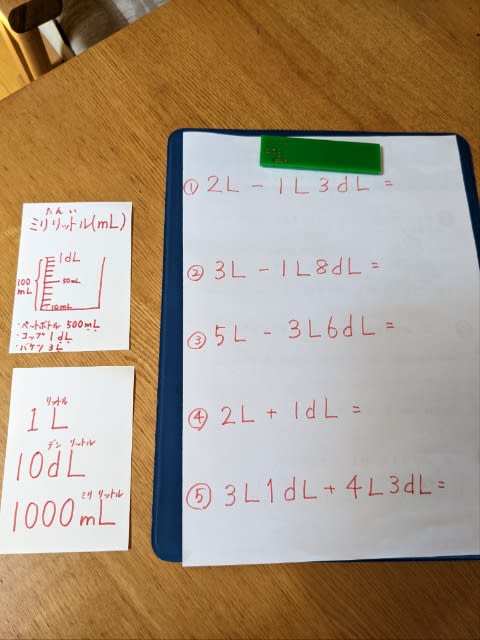 たんい
ミリリットル(mL)
1dL
100mL
50mL
10mL
・ペットボトル 500mL
・コップ 1dL
・バケツ 3L
リットル
1L
デシ リットル
10dL
ミリ リットル
1000mL
① 2L - 1L3dL =
② 3L - 1L8dL =
③ 5L - 3L6dL =
④ 2L + 1dL =
⑤ 3L1dL + 4L3dL =